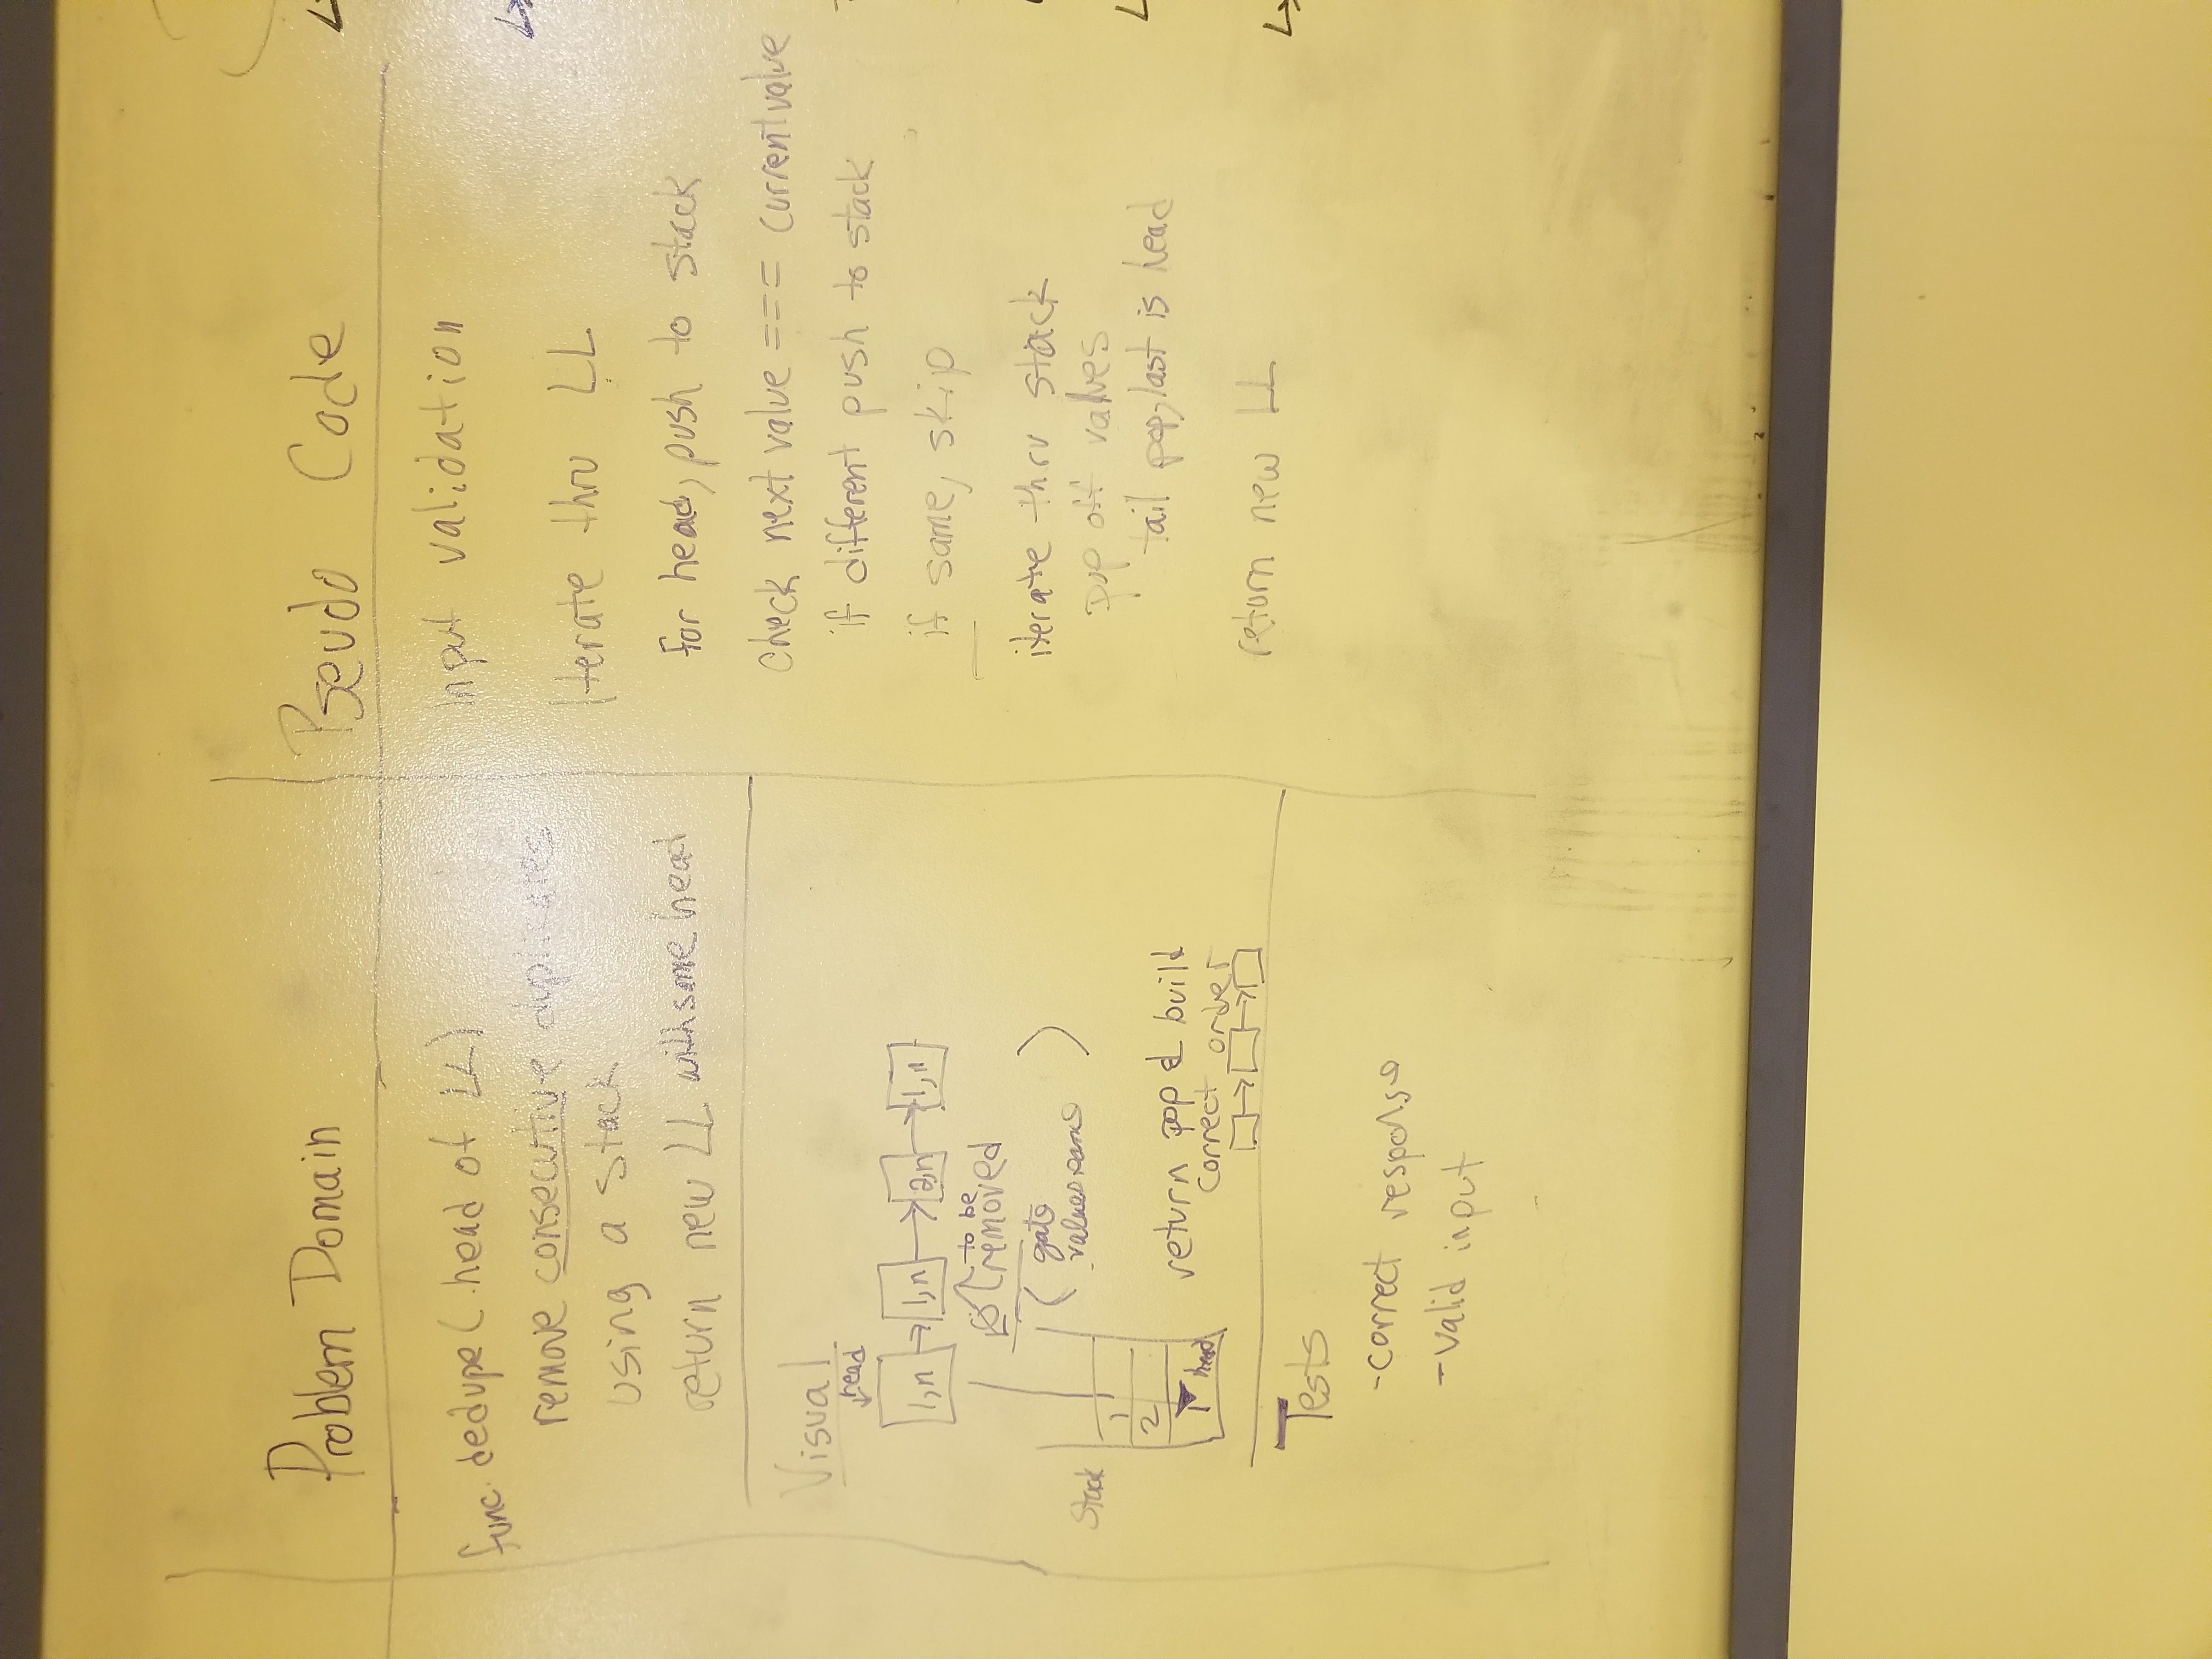 Problem Domain
func. dedupe (head of LL)
remove consecutive duplicates
using a stack
return new LL with same head
Visual
head
1,n → 1,n → 2,n → 1,n
to be
removed
( gate )
values same
Stack
1
2
1 head
return pop & build
correct order
Tests
-correct response
-valid input
Pseudo Code
Input validation
Iterate thru LL
for head, push to stack
check next value === current value
if different push to stack
if same, skip
iterate thru stack
pop off values
tail pop, last is head
return new LL